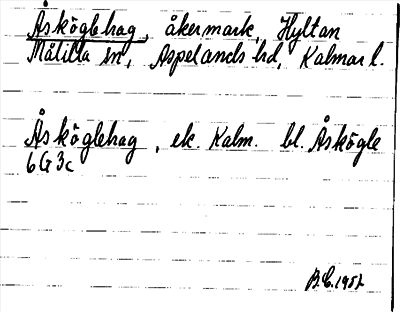 Åsköglehag, åkermark, Hyltan
Målilla sn, Aspelands hd, Kalmar l.
Åsköglehag, ek. Kalm. bl. Åskögle
6G3c
B.C. 1957